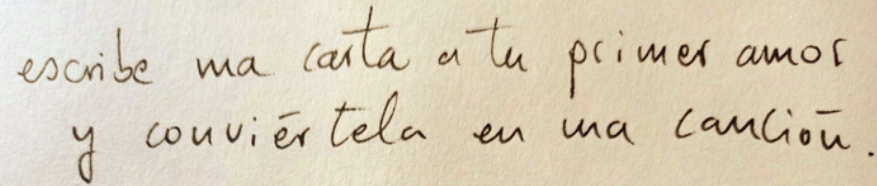 escribe una carta a tu primer amor
y conviértela en una canción.